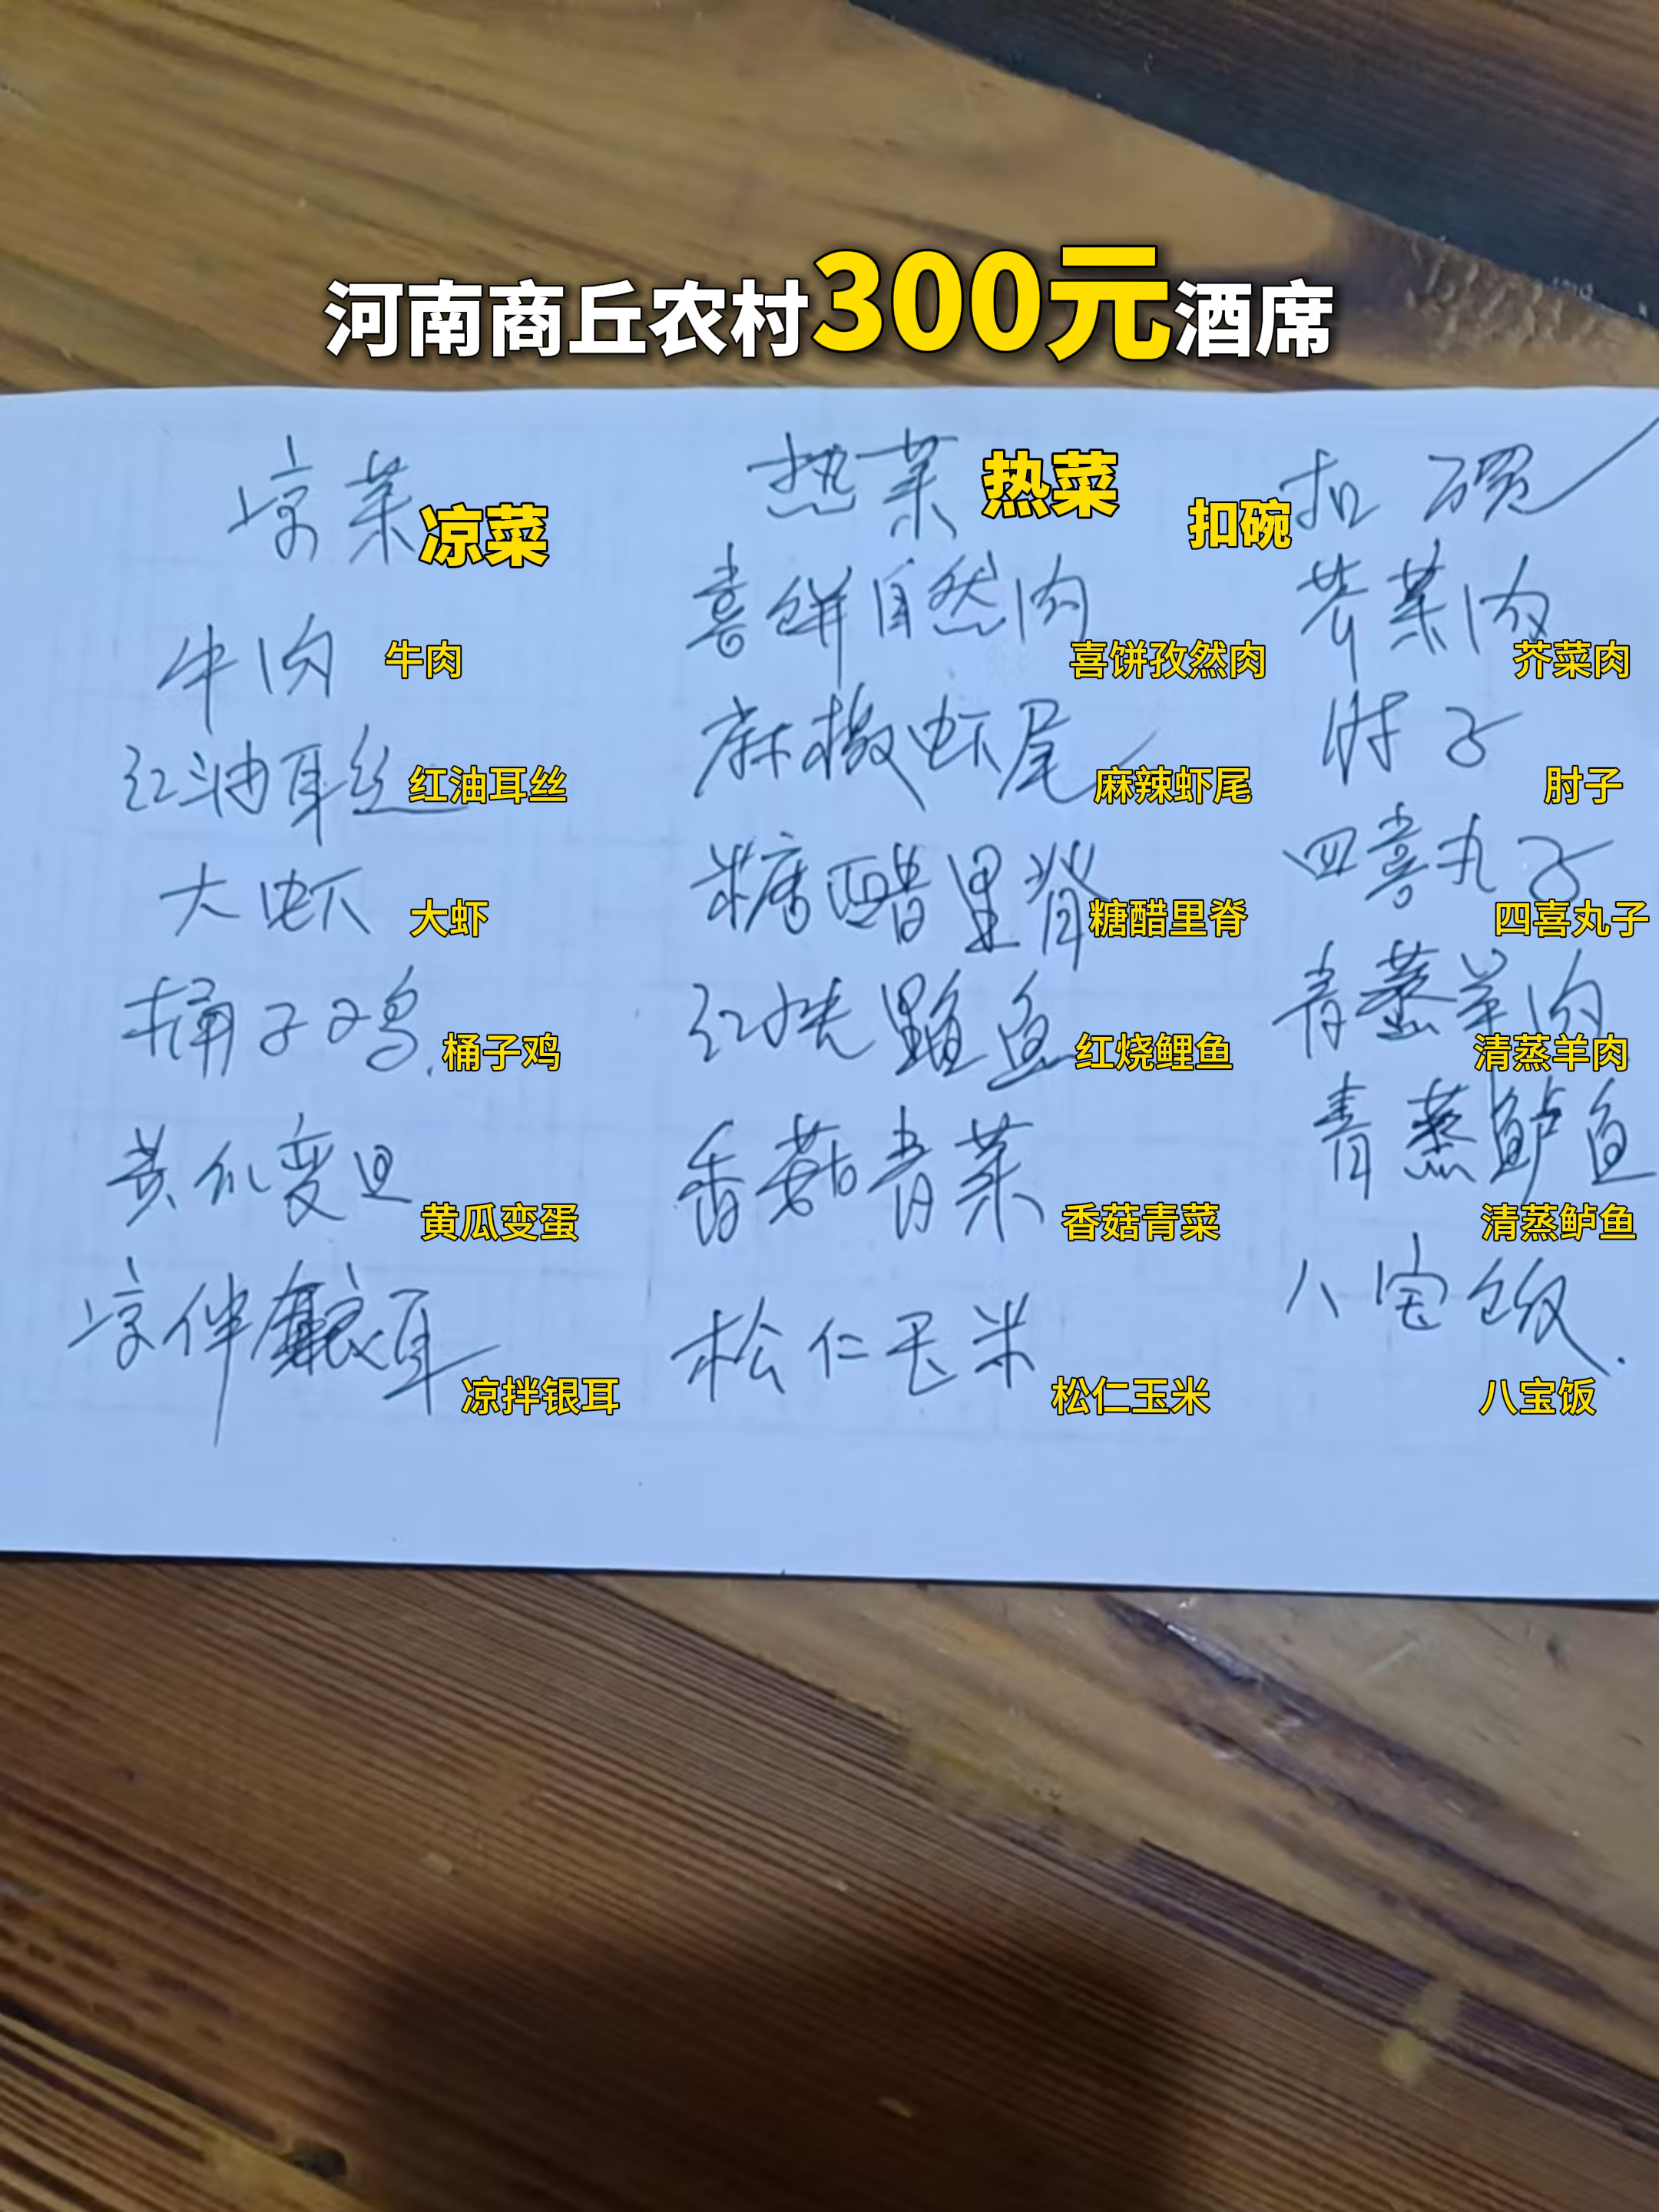 河南商丘农村300元酒席
凉菜 凉菜
牛肉 牛肉
红油耳丝 红油耳丝
大虾 大虾
桶子鸡 桶子鸡
黄瓜变旦 黄瓜变蛋
凉伴银耳 凉拌银耳
热菜 热菜
喜饼自然肉 喜饼孜然肉
麻椒虾尾 麻辣虾尾
糖醋里脊 糖醋里脊
红烧鲤鱼 红烧鲤鱼
香菇青菜 香菇青菜
松仁玉米 松仁玉米
扣碗 扣碗
芥菜肉 芥菜肉
肘子 肘子
四喜丸子 四喜丸子
青蒸羊肉 清蒸羊肉
青蒸鲈鱼 清蒸鲈鱼
八宝饭 八宝饭